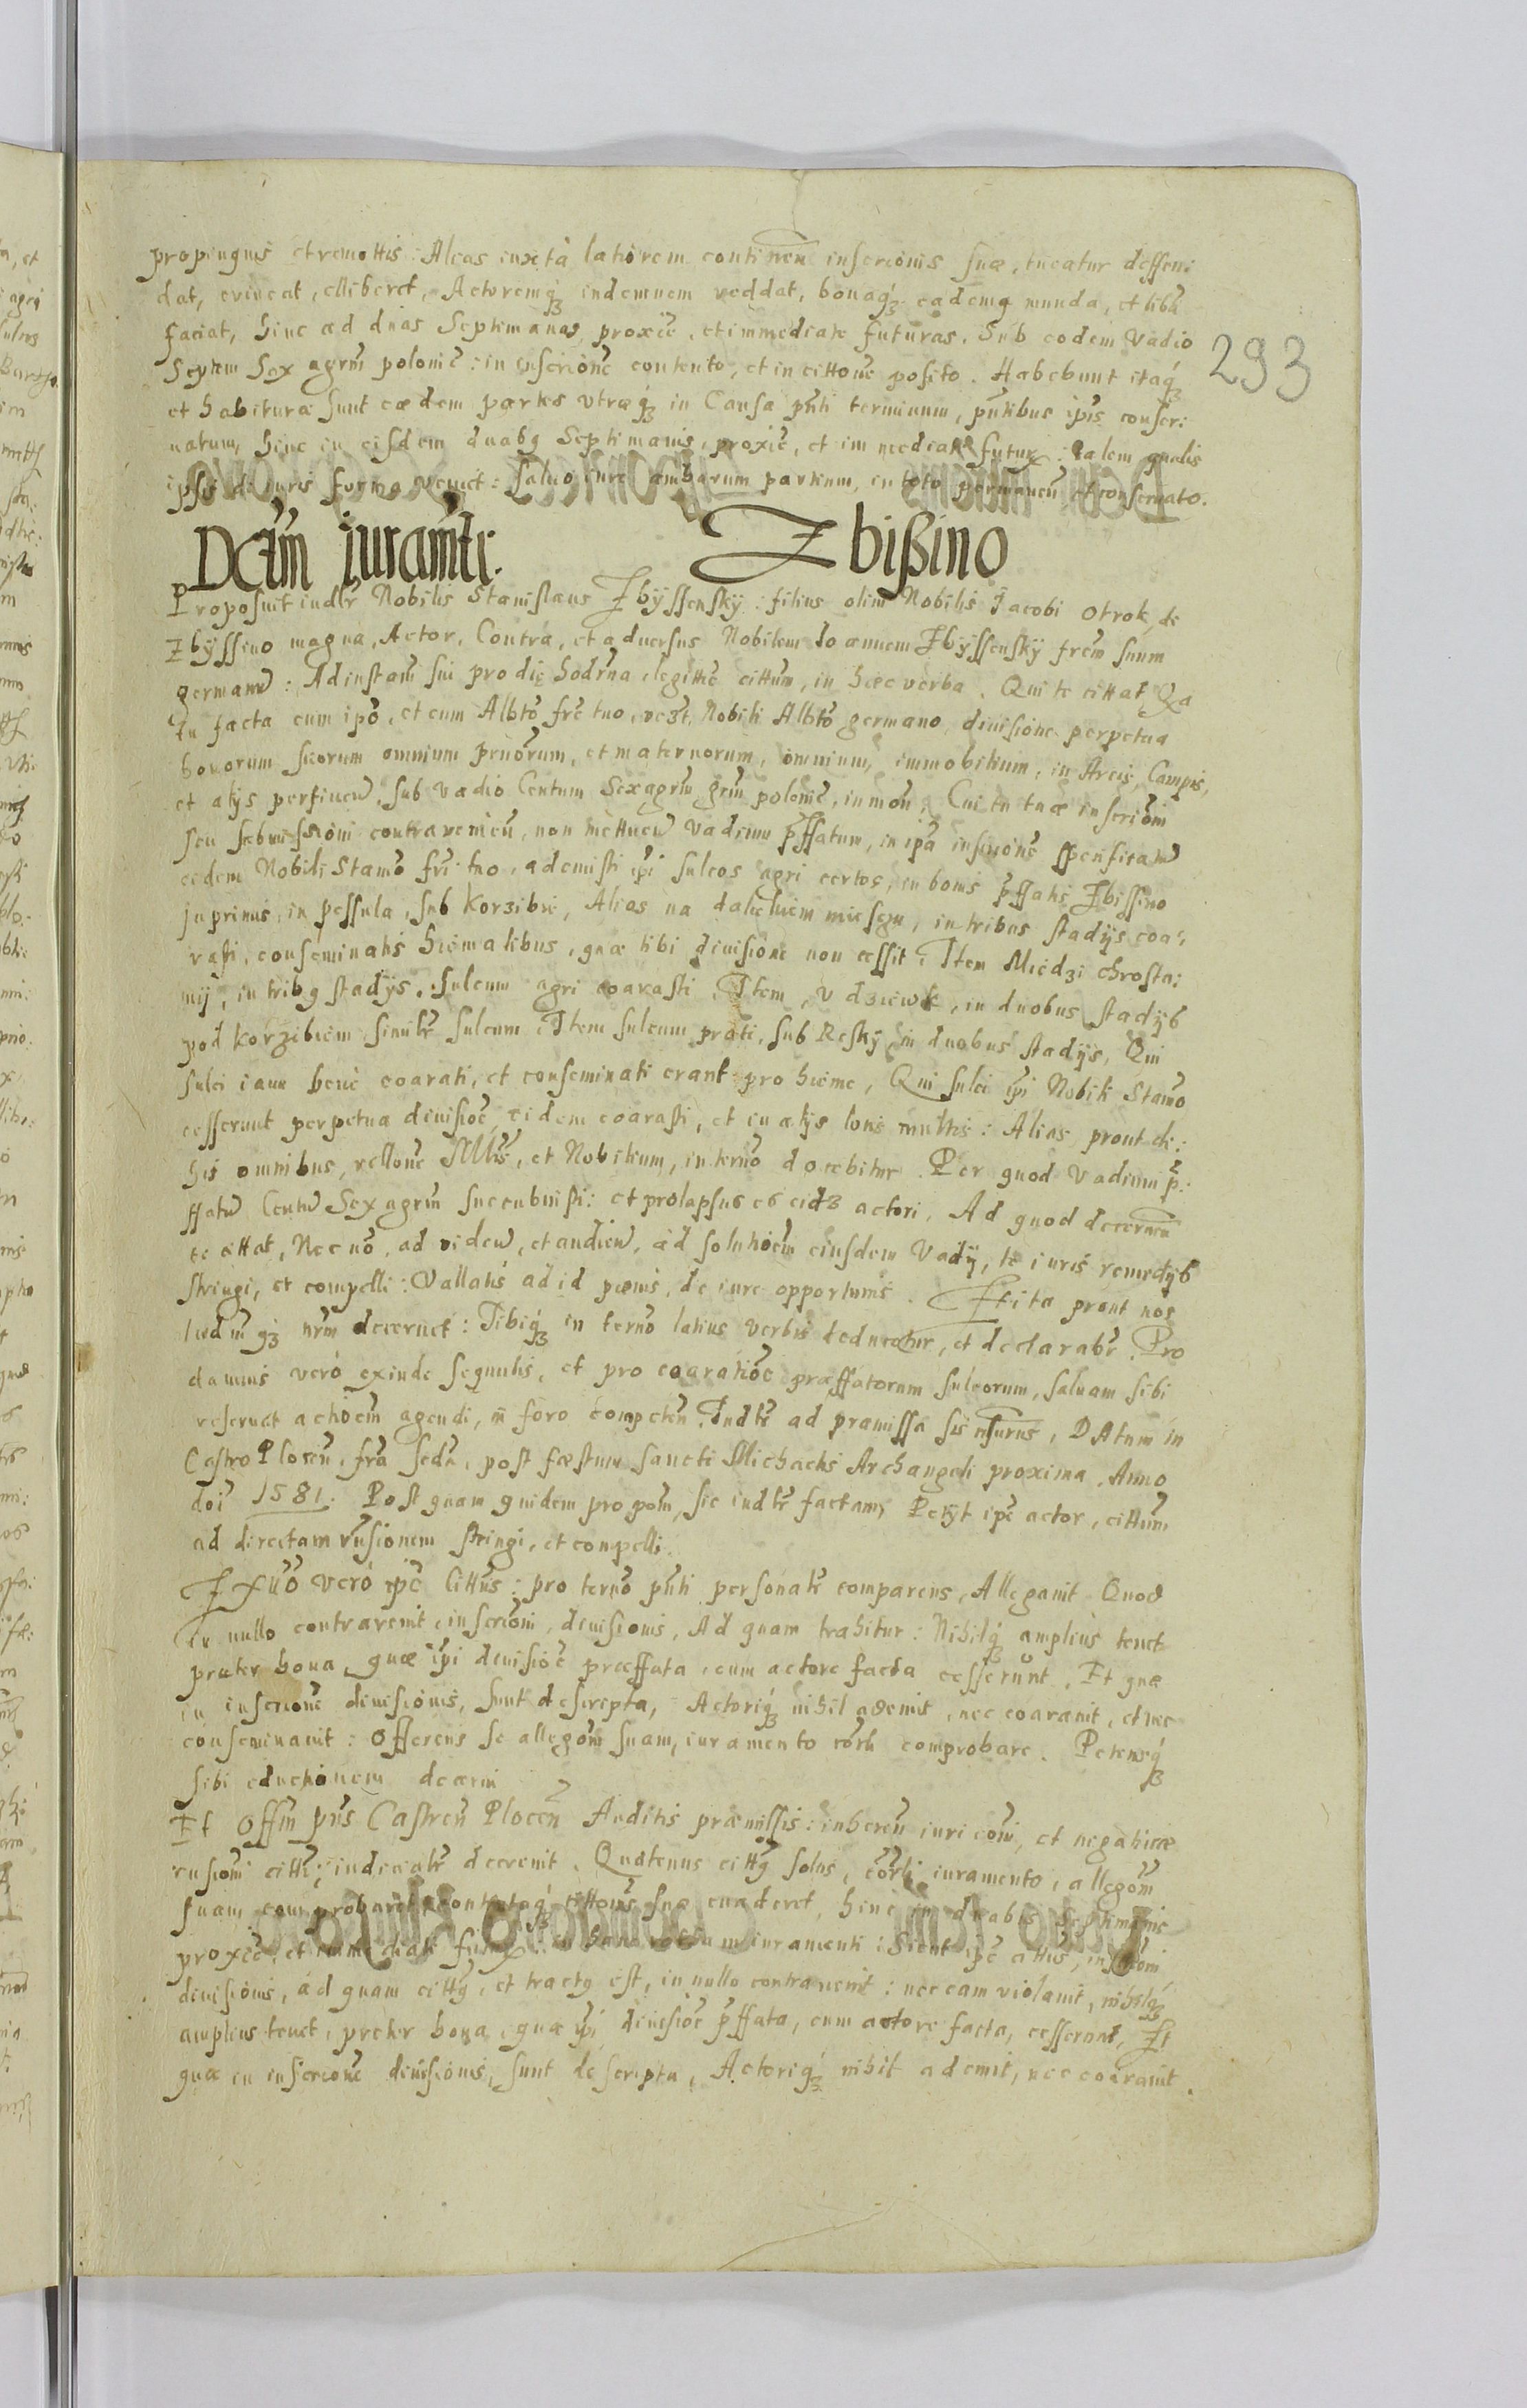 propinquis et remottis: Aleas iuxta latiorem continen inscrionis suæ, tueatur deffen:
dat, evincat, elliberet, Actoremq́ꝫ indemnem reddat, bonaq́ꝫ eademq munda, et liba
faciat, hinc ad duas Septimanas, proxie, et immediate futuras. Sub eodem Vadio
Septem Sex agrm polonie: in inscrione contento, et in cittone posito. Habebunt itaq́ꝫ
et habituræ sunt eædem partes vtræqꝫ in Causa pnti terminum, pntibus ipis conser:
uatum, hinc in eisdem duabꝫ Septimanis, proxie, et immediate futur: talem qualis
ipsis de iuris forma venict: saluo iure ambarum partium, in toto permanen et conseruato.
Decrm iuramti. Zbißino
Proposuit iudlr Nobilis Stanislaus Zbyssensky: filius olim Nobilis Jacobi Otrok, de
Zbyssino magna, Actor, Contra, et aduersus Nobilem Joannem Zbyssensky frem suum
germanu: Ad instam sui pro die hodrna legitte cittum, in hæc verba. Qui te cittat Qa
Tu facta cum ipo, et cum Albto fre tuo, Nobili Albto germano diuisione perpetua
bonorum suorum omnium prnorum, et maternorum, omnium, immobilium, in Areis, Campis,
et alys pertinen, sub vadio Centum Sexagrm grm polonie, in mon. Cui tu tuæ inscrioni
seu submissioni contravenien, non mettuen Vadium pffatum, in ipa inscrione spenficatu
eidem Nobili Stano fri tuo, ademisti ipi sulcos agri certos, in bonis pffatis Zbissino
inprimis, in pessula, sub korzibie, Alias na daliekiem miesczu, in tribus stadys coa:
rasti, conseminatis hiemalibus, quæ tibi diuisione non cessit. Item Miedzi chrosta:
mij, in tribꝫ stadys, sulcum agri coarasti. Item, v dziewk, in duobus stadys
pod korzibiem similr sulcum. Item sulcum prati, sub Resky in duobus stadys, Qui
sulci iam bene coarati, et conseminati erant pro hieme, Qui sulci ipi Nobili Stano
cesserunt perpetua diuisioe, eidem coarasti, et in alys locis multis: Alias prout de:
his omnibus, rellone Mlris, et Nobilium, in terno docebitur. Per quod Vadium p:
ffatu Centu Sex agrm succubuisti: et prolapsus es eidꝫ actori. Ad quod decernen
te cittat, Nec no, ad viden, et audien, ad solutioem eiusdem Vady, te iuris remedys
stringi, et compelli: Vallatis ad id pœnis, de iure opportunis. Et ita prout nos
Iudmqꝫ nrm decernet: Tibiq́ꝫ in terno latius verbis deducetur, et declarabr. Pro
damnis vero exinde sequutis, et pro coaratioe præffatorum sulcorum, saluam sibi
reseruet actioem agendi, in foro competen. Iudlr ad pramissa sis rnsurus, DAtum in
Castro Plocen, fra seda, post fæstum Sancti Michaelis Archangeli proxima. Anno
doi 1581. Post quam quidem propom, sic iudlr factam, Petyt ipe actor, cittum
ad directam rnsionem stringi, et compelli.
Ex aduo vero ipe Cittus: pro terno pnti personalr comparens, Allegauit. Quod
in nullo contravenit, inscrioni, diuisionis, Ad quam trahitur: Nihilq́ꝫ amplius tenet
præter bona, quæ ipi diuisioe præffata, cum actore facta cesserunt. Et quæ
in inscrione diuisionis, sunt descripta, Actoriq́ꝫ nihil ademit, nec coarauit, et nec
conseminauit: Offerens se allegom suam, iuramento corli comprobare. Petensq́ꝫ
sibi eductionem decerni
Et Offm pns Castren Plocen Auditis præmissis: inheren iuri coni, et negatiuæ
rnsioni citti; iudicialr decrevit. Quatenus cittꝫ solus, corli iuramento, allegom
suam comprobaret contentaq́ꝫ cittonis suæ euaderet, hinc in duabꝫ Septimanis
proxie, et immediate futur: in hanc rotham iuramenti: Sicut ipe cittus, inscrioni
diuisionis, ad quam cittꝫ, et tractꝫ est, in nullo contravenit: nec eam violauit, nihilqꝫ
amplius tenet, præter bona, quæ ipi diuisioe pffata, cum actore facta, cesserunt, Et
quæ in inscrione diuisionis, sunt descripta, Actoriq́ꝫ nihil ademit, nec coarauit.
293